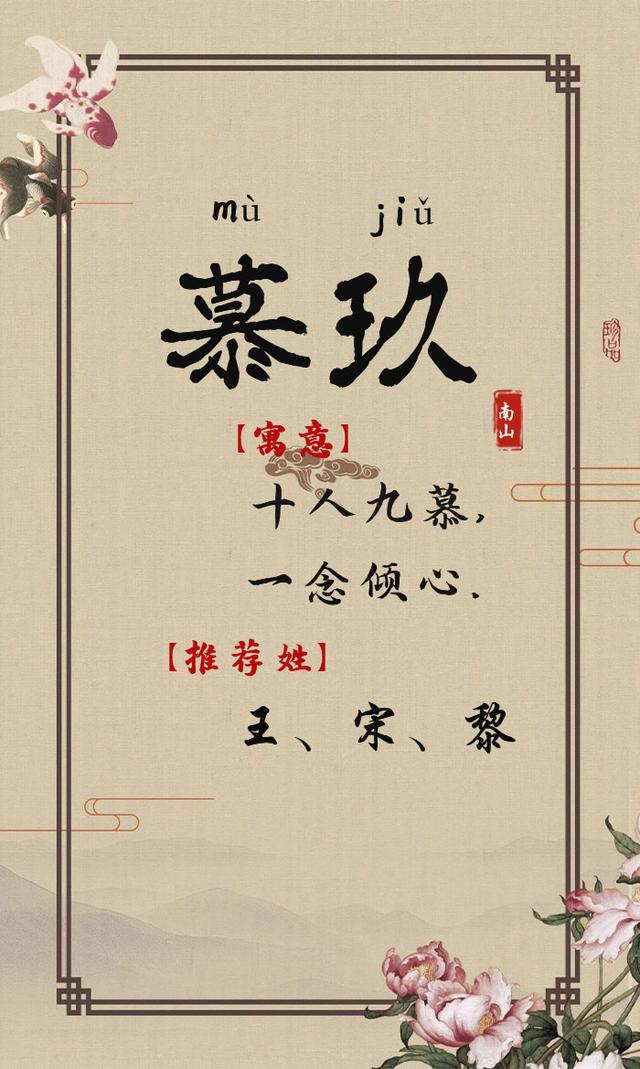 mù jiǔ
慕玖
南山
【寓意】
十人九慕，
一念倾心．
【推荐姓】
王、宋、黎
珍品